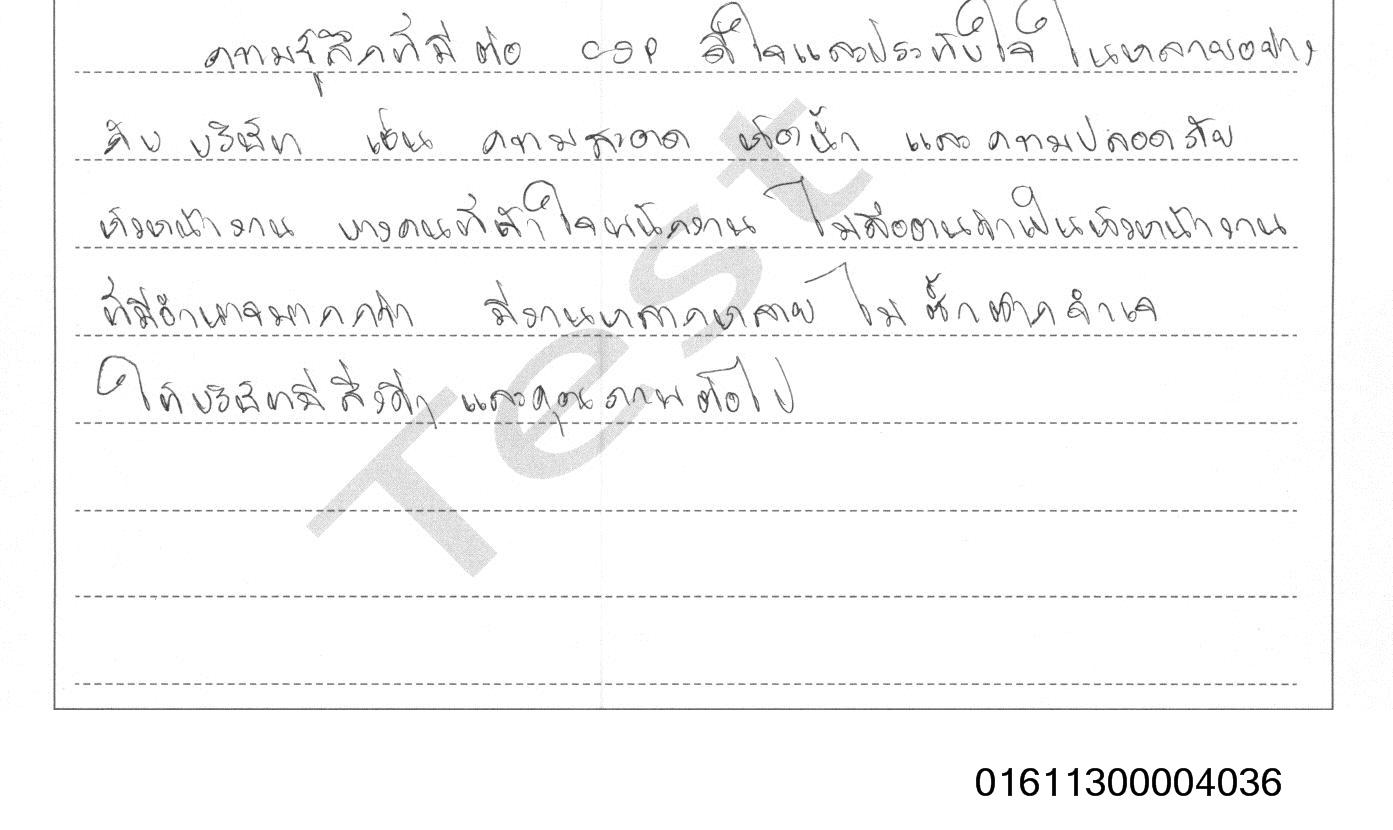 ความรู้สึกที่มีต่อ CSP ดีใจและประทับใจในหลายอย่าง
กับ บริษัท เช่น ความสะอาด ห้องน้ำ และความปลอดภัย
หัวหน้างาน บางคนที่เข้าใจพนักงาน ไม่ถือตนว่าเป็นหัวหน้างาน
ที่มีอำนาจมากกว่า มีงานหลากหลาย ไม่ซ้ำซากจำเจ
ให้บริษัทมีสิ่งดีๆ และคุณภาพต่อไป
Test
01611300004036